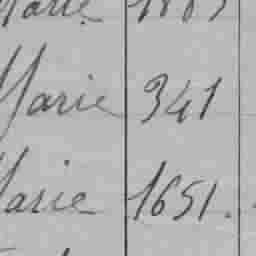 Marie
Marie 341
Marie 1651.